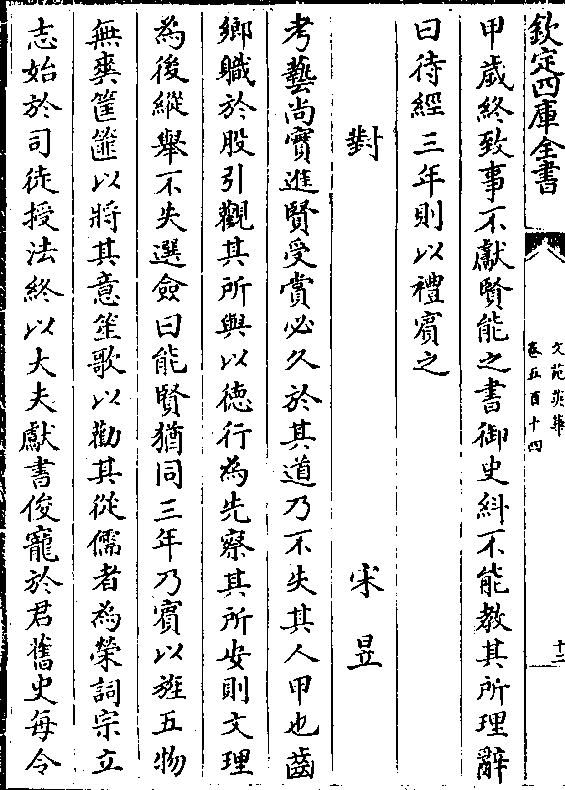 欽定四庫全書
文苑英華
卷五百十四
十二
甲歲終致事不獻賢能之書御史糾不能教其所理辭
曰待經三年則以禮賓之
對
宋昱
考藝尚實進賢受賞必久於其道乃不失其人甲也齒
鄉職於股引觀其所與以徳行為先察其所安則文理
為後縱舉不失選僉曰能賢猶同三年乃賓以旌五物
無爽筐篚以將其意笙歌以勸其從儒者為榮詞宗立
志始於司徒授法終以大夫獻書俊寵於君舊史每令